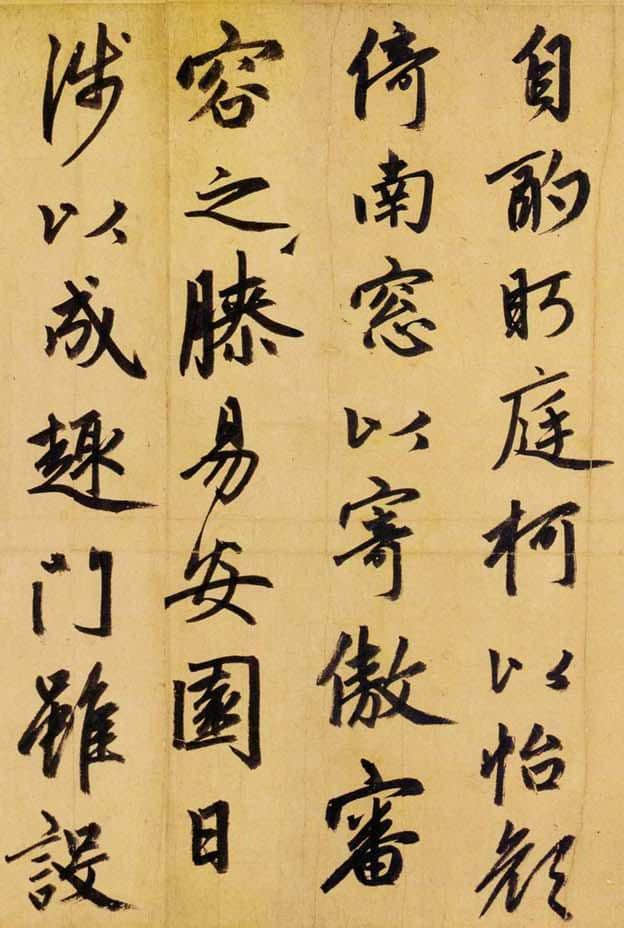 自酌眄庭柯以怡顔
倚南窓以寄傲審
容之膝易安園日
涉以成趣門雖設